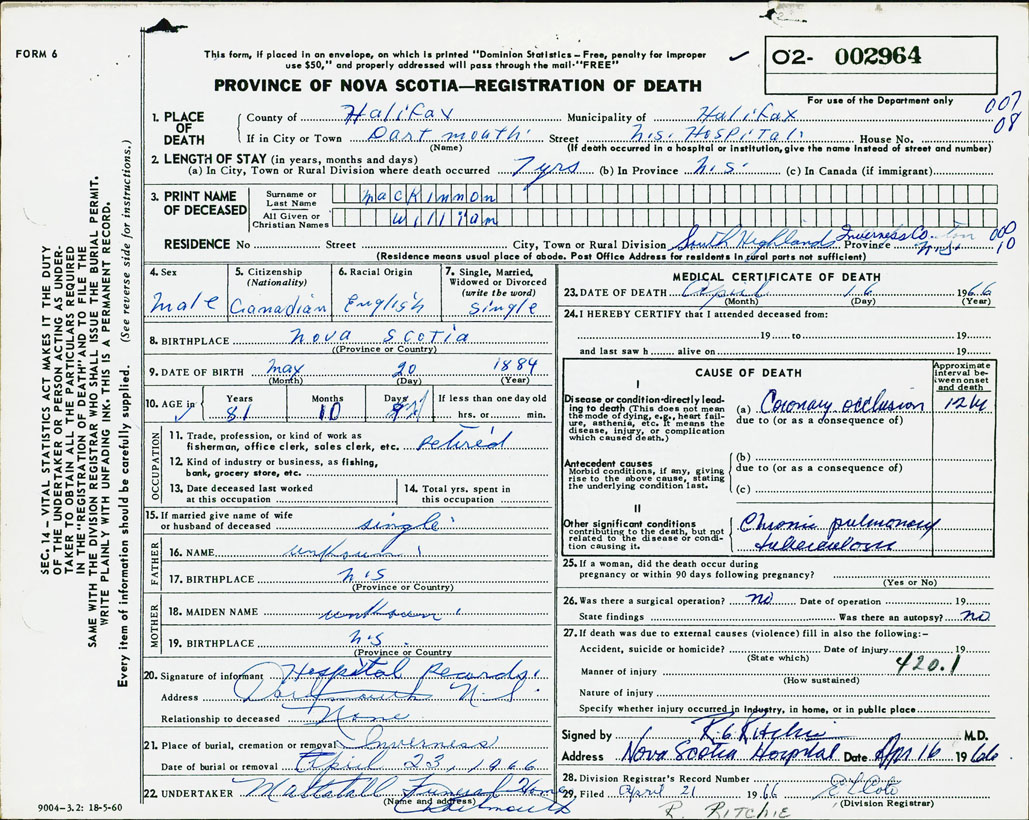 FORM 6
This form, if placed in an envelope, on which is printed "Dominion Statistics – Free, penalty for improper
use $50," and properly addressed will pass through the mail-"FREE"
O2- 002964
PROVINCE OF NOVA SCOTIA—REGISTRATION OF DEATH
For use of the Department only
007
08
1. PLACE OF DEATH
County of Halifax Municipality of Halifax
If in City or Town Dartmouth Street N.S. Hospital House No.
(Name) (If death occurred in a hospital or institution, give the name instead of street and number)
2. LENGTH OF STAY (in years, months and days)
(a) In City, Town or Rural Division where death occurred 7 yrs (b) In Province N.S. (c) In Canada (if immigrant)
3. PRINT NAME OF DECEASED
Surname or Last Name MacKinnon
All Given or Christian Names William
RESIDENCE No Street City, Town or Rural Division South Highlands Inverness Co. Province N.S. 009 10
(Residence means usual place of abode. Post Office Address for residents in rural parts not sufficient)
4. Sex
Male
5. Citizenship (Nationality)
Canadian
6. Racial Origin
English
7. Single, Married, Widowed or Divorced (write the word)
Single
8. BIRTHPLACE Nova Scotia
((Province or Country)
9. DATE OF BIRTH May 20 1884
(Month) (Day) (Year)
10. AGE in Years Months Days If less than one day old
81 10 hrs. or min.
OCCUPATION
11. Trade, profession, or kind of work as
fisherman, office clerk, sales clerk, etc. retired
12. Kind of industry or business, as fishing,
bank, grocery store, etc.
13. Date deceased last worked
at this occupation
14. Total yrs. spent in
this occupation
15. If married give name of wife
or husband of deceased single
FATHER
16. NAME unknown
17. BIRTHPLACE N.S
(Province or Country)
MOTHER
18. MAIDEN NAME unknown
19. BIRTHPLACE N.S.
(Province or Country
20. Signature of informant Hospital Records.
Address Dartmouth N.S.
Relationship to deceased None
21. Place of burial, cremation or removal Inverness
Date of burial or removal April 23, 1966
22. UNDERTAKER Mattatall Funeral Home
(Name and address)
Dartmouth
9004-3.2: 18-5-60
MEDICAL CERTIFICATE OF DEATH
23. DATE OF DEATH April 16 1966
(Month) (Day) (Year)
24. I HEREBY CERTIFY that I attended deceased from:
19 to 19
and last saw h alive on 19
CAUSE OF DEATH
Approximate interval between onset and death
I
Disease or condition directly leading to death (This does not mean the mode of dying, e.g., heart failure, asthenia, etc. It means the disease, injury, or complication which caused death.)
(a) Coronary occlusion 12 hr
due to (or as a consequence of)
Antecedent causes
Morbid conditions, if any, giving rise to the above cause, stating the underlying condition last.
(b)
due to (or as a consequence of)
(c)
II
Other significant conditions contributing to the death, but not related to the disease or condition causing it.
Chronic pulmonary
tuberculosis
25. If a woman, did the death occur during
pregnancy or within 90 days following pregnancy?
(Yes or No)
26. Was there a surgical operation? No Date of operation 19
State findings Was there an autopsy? no
27. If death was due to external causes (violence) fill in also the following:-
Accident, suicide or homicide? Date of injury 19
(State which)
420.1
Manner of injury
(How sustained)
Nature of injury
Specify whether injury occurred in industry, in home, or in public place
Signed by R. G. Ritchie M.D.
Address Nova Scotia Hospital Date Apr 16 1966
28. Division Registrar's Record Number
29. Filed April 21 1966
(Division Registrar)
R. RITCHIE
SEC. 14 – VITAL STATISTICS ACT MAKES IT THE DUTY
OF THE UNDERTAKER OR PERSON ACTING AS UNDERTAKER
TO OBTAIN ALL THE PARTICULARS REQUIRED
IN THE "REGISTRATION OF DEATH" AND TO FILE THE
SAME WITH THE DIVISION REGISTRAR WHO SHALL ISSUE THE BURIAL PERMIT.
WRITE PLAINLY WITH UNFADING INK. THIS IS A PERMANENT RECORD.
Every item of information should be carefully supplied. (See reverse side for instructions.)